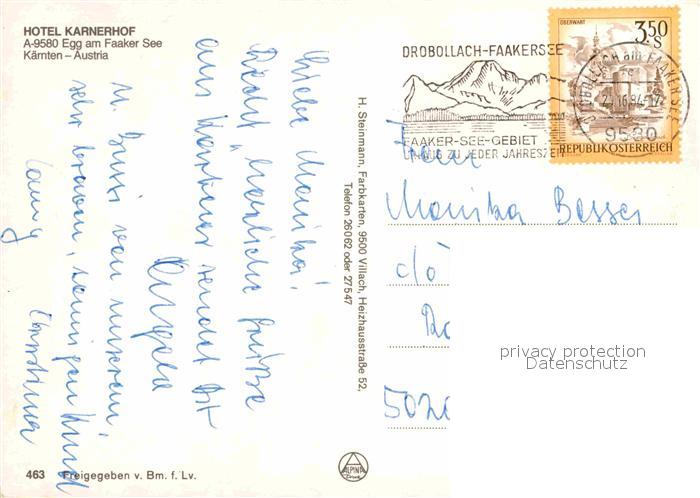 HOTEL KARNERHOF
A-9580 Egg am Faaker See
Kärnten – Austria
DROBOLLACH-FAAKERSEE
FAAKER-SEE-GEBIET
URLAUB ZU JEDER JAHRESZEIT
OBERWART
3,50
S
REPUBLIK ÖSTERREICH
DROBOLLACH am FAAKER SEE
9580
Liebe Monika!
herzliche Grüße
aus Kärnten sendet Dir
Angela
u. Bussi von unserem,
sehr braven, sonnigen Kind
Christina
H. Steinmann, Farbkarten, 9500 Villach, Heizhausstraße 52,
Telefon 26062 oder 27547
Frau
Monika Besser
c/o
5020
privacy protection
Datenschutz
463 Freigegeben v. Bm. f. Lv.
ALPINA